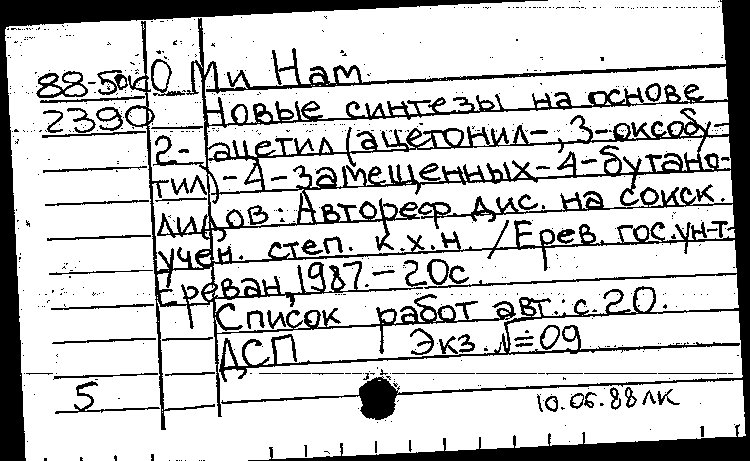 88-50к О Ми Нам.
2390 Новые синтезы на основе
2-ацетил(ацетонил-, 3-оксобу-
тил)-4-замещенных-4-бутано-
лидов: Автореф. дис. на соиск.
учен. степ. к.х.н. /Ерев. гос. ун-т.-
Ереван, 1987.-20с.
Список работ авт.: с.20.
ДСП Экз. №=09
5
10.06.88 ЛК